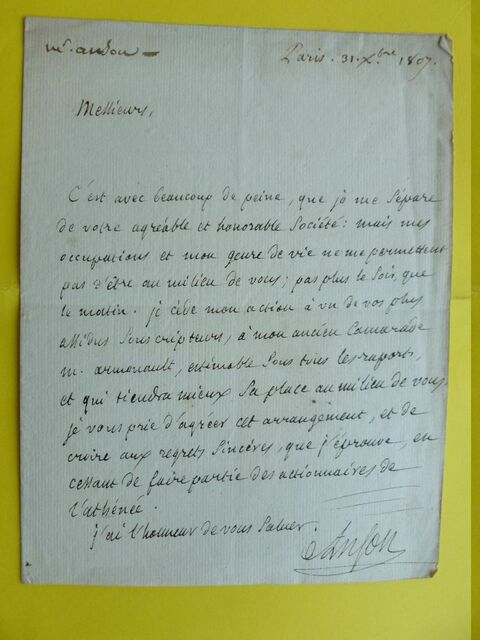 Mr. andon —
Paris. 31. Xbre 1807.
Messieurs,
C'est avec beaucoup de peine, que je me sépare
de votre agréable et honorable Société: mais mes
occupations et mon genre de vie ne me permettent
pas d'être au milieu de vous; pas plus le Soir, que
le matin. je cède mon action à un de vos plus
assidus Souscripteurs, à mon ancien Camarade
m. armonault, estimable Sous tous les raports,
et qui tiendra mieux Sa place au milieu de vous.
je vous prie d'agréer cet arrangement, et de
croire aux regrets Sincères, que j'éprouve, en
cessant de faire partie des actionnaires de
l'athénée.
j'ai l'honneur de vous Saluer.